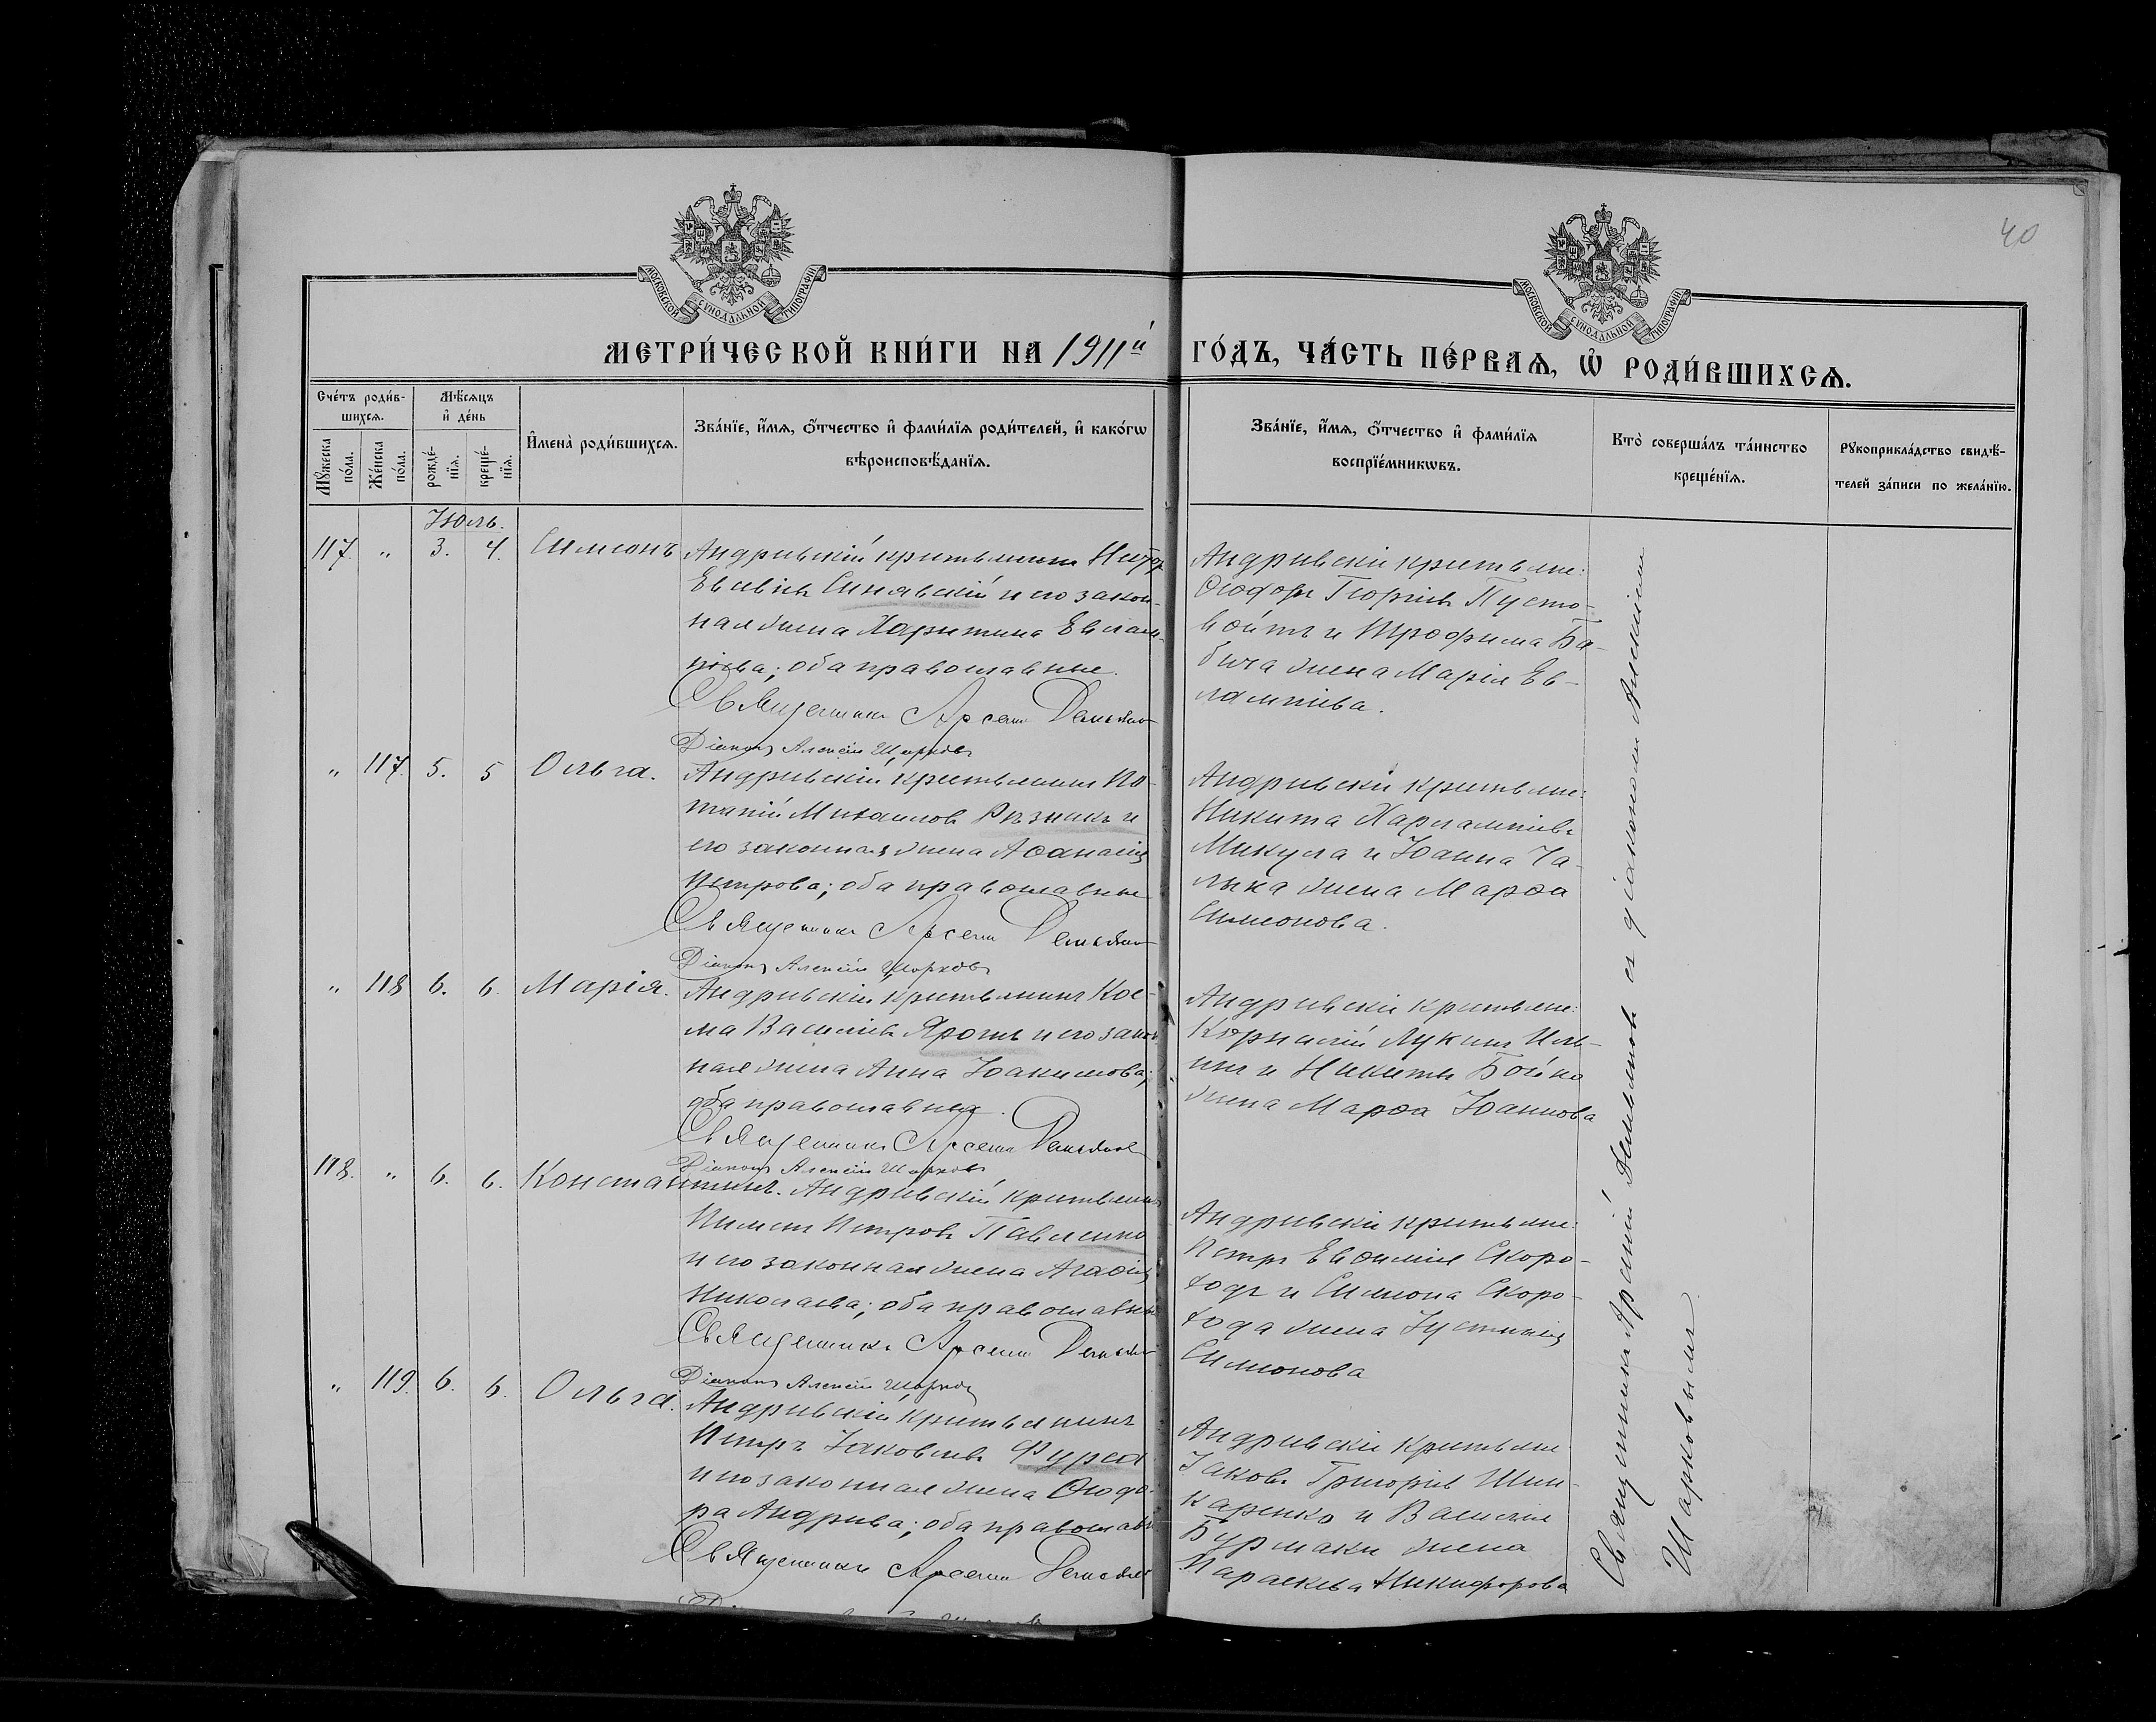 40
МОСКОВСКОЙ СѴНОДАЛЬНОЙ ТИПОГРАФІИ
МОСКОВСКОЙ СѴНОДАЛЬНОЙ ТИПОГРАФІИ
МЕТРИ́ЧЕСКОЙ КНИ́ГИ НА 1911й ГО́ДЪ, ЧА́СТЬ ПЕ́РВАѦ, Ѡ РОДИ́ВШИХСѦ.
Сче́тъ роди́в-
шихсѧ.
Мꙋ́жеска
по́ла.
Же́нска
по́ла.
Мѣ́сѧцъ
и҆ де́нь
рожде́-
нїѧ.
креще́-
нїѧ.
И҆мена̀ роди́вшихсѧ.
Зва́нїе, и҆́мѧ, ѻ҆́тчество и҆ фами́лїѧ роди́телей, и҆ како́гѡ
вѣроисповѣ́данїѧ.
Зва́нїе, и҆́мѧ, ѻ҆́тчество и҆ фами́лїѧ
воспрїе́мникѡвъ.
Кто̀ соверша́лъ та́инство
креще́нїѧ.
Рꙋкоприкла́дство свидѣ́-
телей за́писи по жела́нїю.
Іюль.
117. " 3. 4. Симеонъ
Андреевскій крестьянинъ
Евсевіевъ Синявскій и его закон-
ная жена Харитина Евлам-
піева; оба православные.
Священникъ Арсеній Демьянов
Діаконъ Алексій Шарковъ
Андреевскіе крестьяне:
Ѳеодоръ Георгіевъ Пусто-
войтъ и Трофима Ба-
бича жена Марія Ев-
лампіева.
" 117. 5. 5 Ольга.
Андреевскій крестьянинъ По-
тапій Михаиловъ Рѣзникъ и
его законная жена Аѳанасія
Петрова; оба православные
Священникъ Арсеній Демьянов
Діаконъ Алексій Шарковъ
Андреевскіе крестьяне:
Никита Харлампіевъ
Микула и Іоанна Га-
жена Марѳа
Симеонова.
" 118 6. 6. Марія.
Андреевскій крестьянинъ Кос-
ма Василіевъ Ярошъ и его закон
ная жена Анна Іоакимова;
оба православные.
Священникъ Арсеній Демьянов
Діаконъ Алексій Шарковъ
Андреевскіе крестьяне:
Корнилій Лукинъ Иль-
инъ и Никиты Бойко
жена Марѳа Іоаннова
118. " 6. 6. Константинъ.
Андреевскій крестьянинъ
Пименъ Петровъ Павленко
и его законная жена Агаѳія
Николаева; оба православные
Священникъ Арсеній Демьянов
Діаконъ Алексій Шарковъ
Андреевскіе крестьяне:
Петръ Евѳиміевъ Скоро-
ходъ и Симеона Скоро-
хода жена Іустинія
Симеонова
" 119. 6. 6. Ольга.
Андреевскій крестьянинъ
Петръ Іаковлевъ Фурса
и его законная жена Ѳеодо-
ра Андреева; оба православн
Священникъ Арсеній Демьянов
Андреевскіе крестьяне
Іаковъ Григоріевъ Шин-
каренко и Василія
Бурмаки жена
Параскева Никифорова
Священникъ Арсеній Демьяновъ съ діакономъ Алексіемъ
Шарковымъ